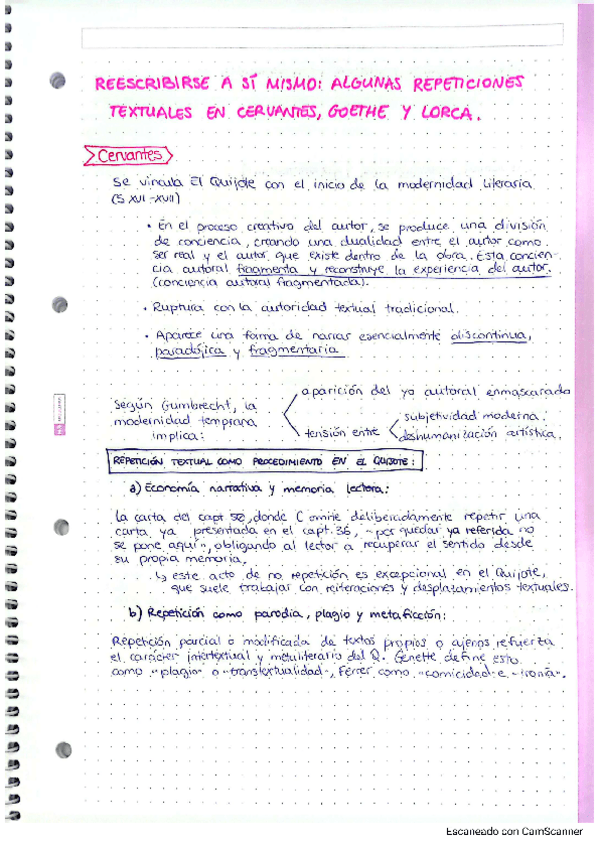 REESCRIBIRSE A SÍ MISMO: ALGUNAS REPETICIONES
TEXTUALES EN CERVANTES, GOETHE Y LORCA.
Cervantes
Se vincula El Quijote con el inicio de la modernidad literaria
(S XVI-XVII)
• En el proceso creativo del autor, se produce una división
de conciencia, creando una dualidad entre el autor como
ser real y el autor que existe dentro de la obra. Esta concien-
cia autoral fragmenta y reconstruye la experiencia del autor.
(conciencia autoral fragmentada).
• Ruptura con la autoridad textual tradicional.
• Aparece una forma de narrar esencialmente discontinua,
paradójica y fragmentaria
Según Gumbrecht, la
modernidad temprana
implica:
aparición del yo autoral enmascarado
tensión entre
subjetividad moderna.
deshumanización artística.
REPETICIÓN TEXTUAL COMO PROCEDIMIENTO EN EL QUIJOTE:
a) Economía narrativa y memoria lectora:
La carta del capt 52, donde C omite deliberadamente repetir una
carta ya presentada en el capt. 36, "por quedar ya referida no
se pone aquí", obligando al lector a recuperar el sentido desde
su propia memoria.
↳ este acto de no repetición es excepcional en el Quijote,
que suele trabajar con reiteraciones y desplazamientos textuales.
b) Repetición como parodia, plagio y metaficción:
Repetición parcial o modificada de textos propios o ajenos refuerza
el carácter intertextual y metaliterario del Q. Genette define esto
como "plagio" o "transtextualidad", Ferrer como "comicidad e ironía".
Escaneado con CamScanner